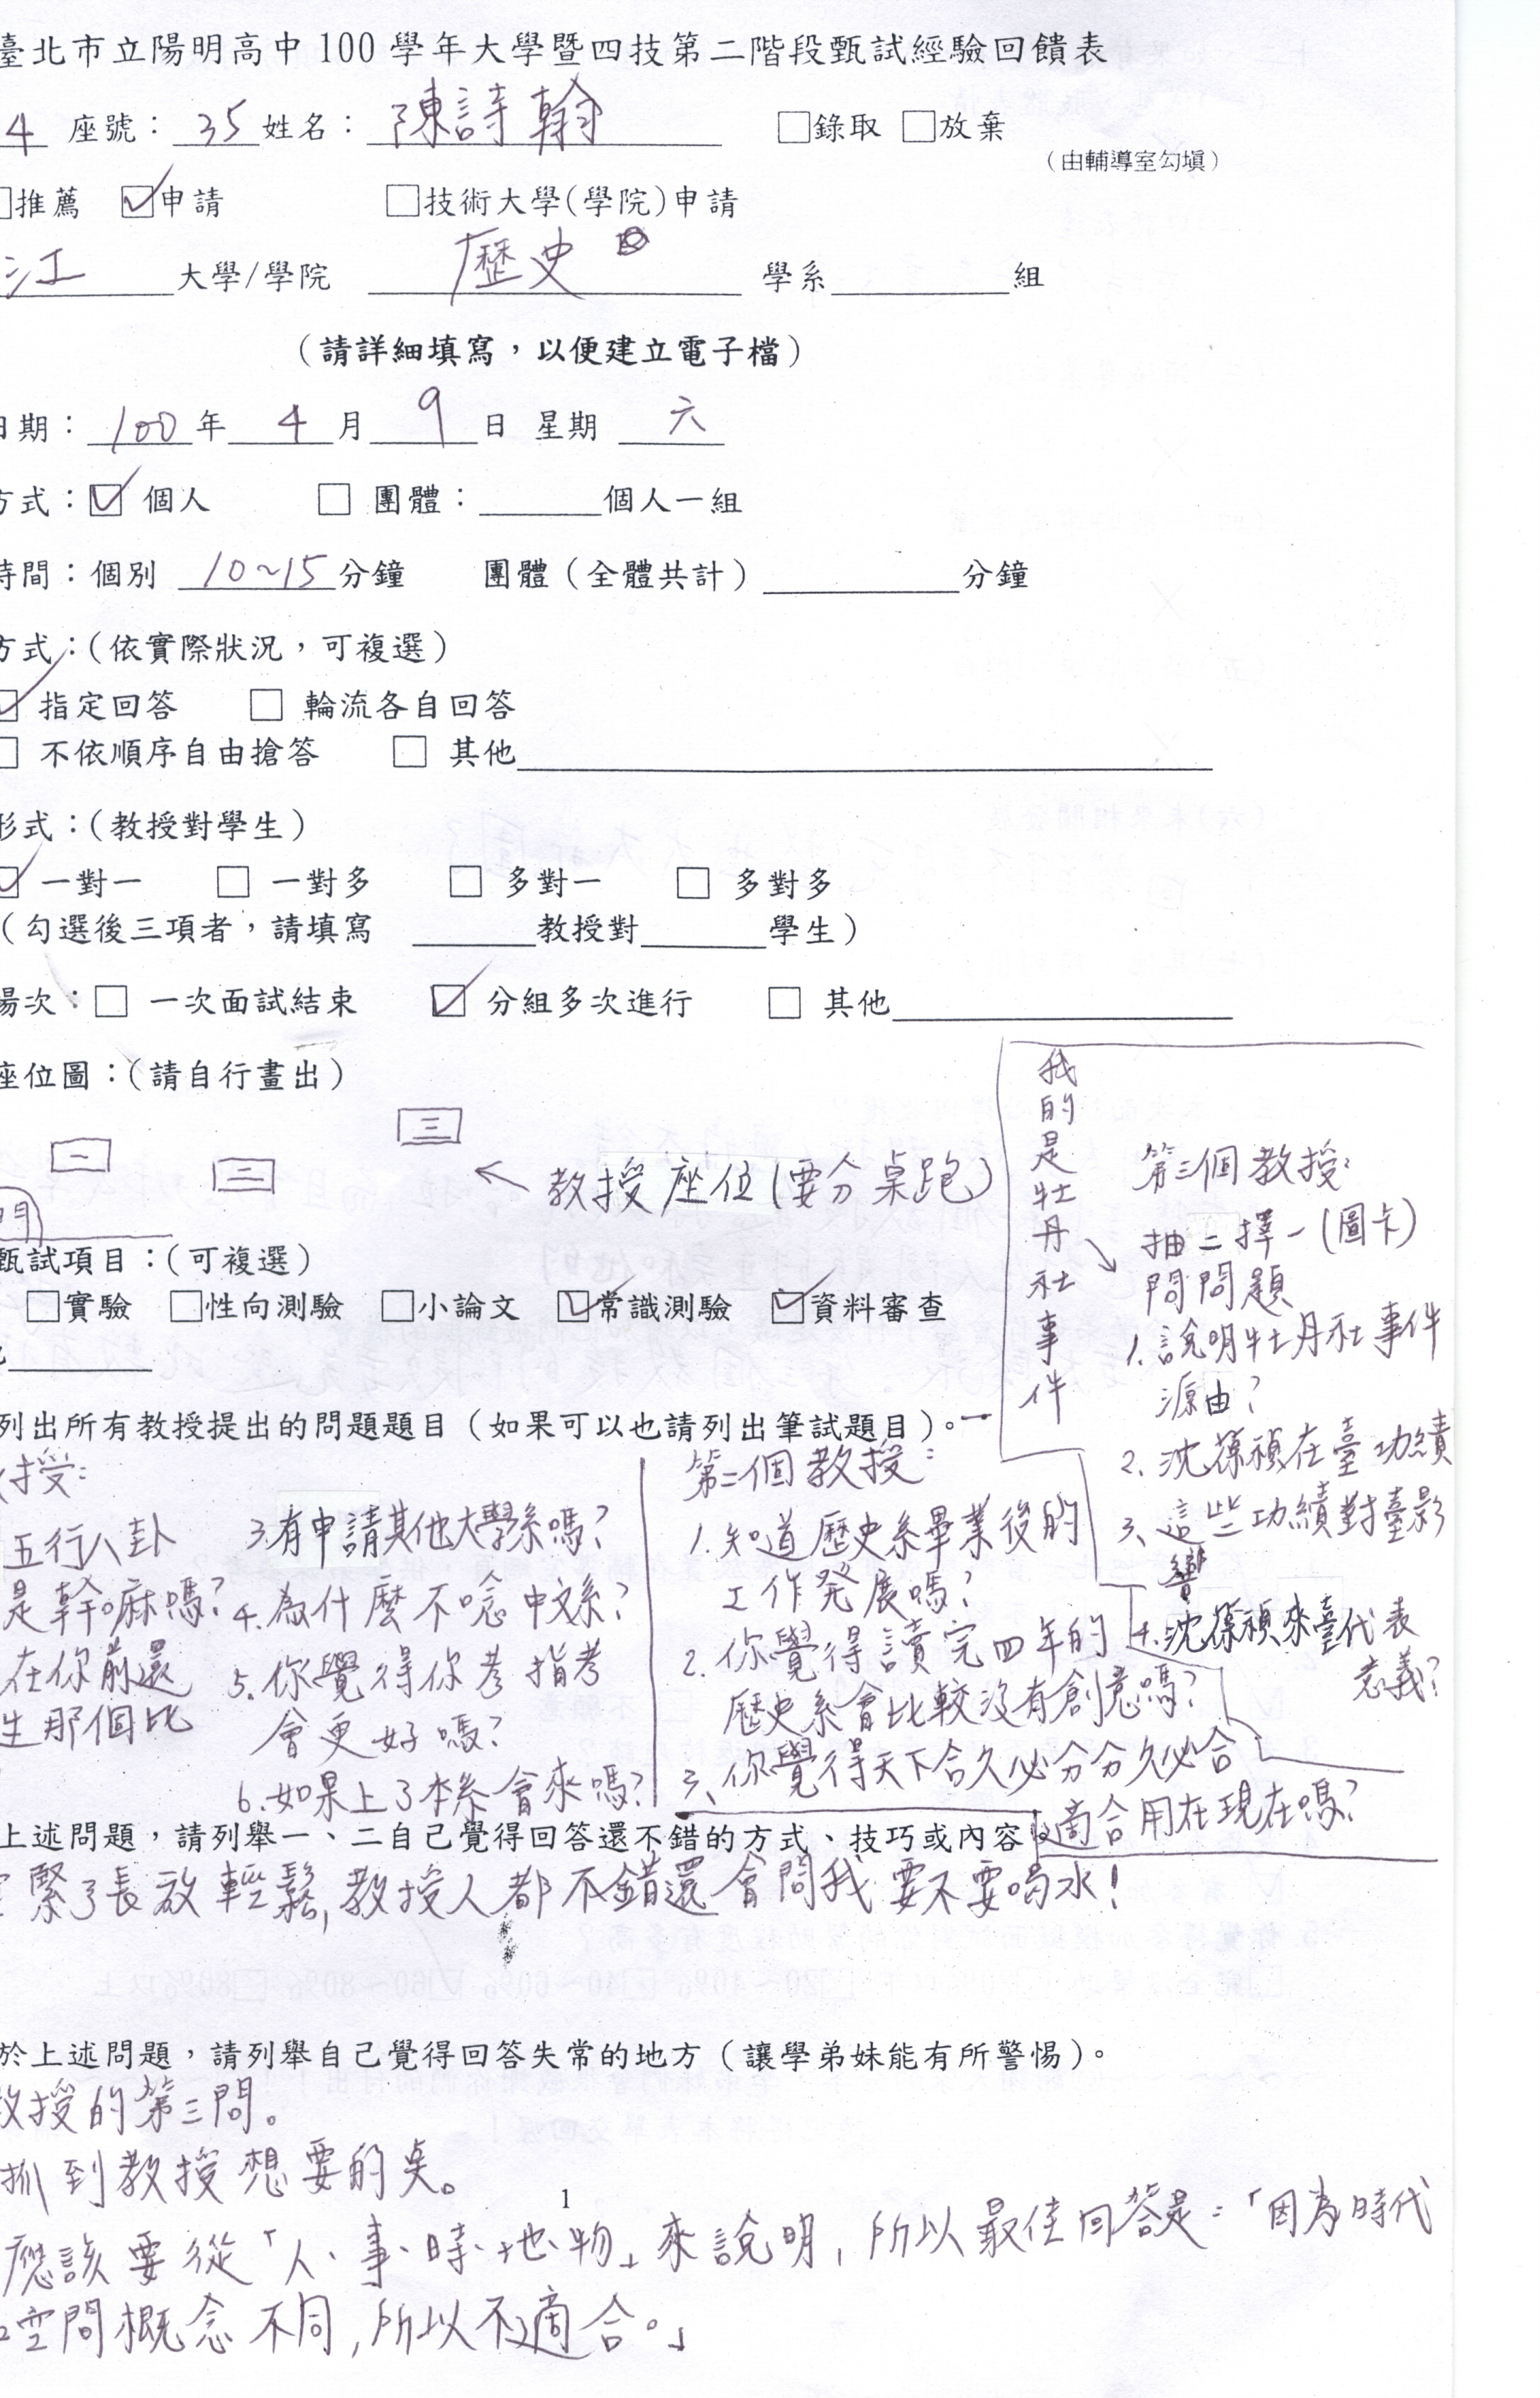 臺北市立陽明高中 100 學年大學暨四技第二階段甄試經驗回饋表
4 座號：35 姓名：陳詩翰 □錄取 □放棄
（由輔導室勾填）
□推薦 ☑申請 □技術大學(學院)申請
江 大學/學院 歷史 學系 組
（請詳細填寫，以便建立電子檔）
日期：100 年 4 月 9 日 星期 六
方式：☑ 個人 □ 團體： 個人一組
時間：個別 10~15 分鐘 團體（全體共計） 分鐘
方式：（依實際狀況，可複選）
☑ 指定回答 □ 輪流各自回答
□ 不依順序自由搶答 □ 其他
形式：（教授對學生）
☑ 一對一 □ 一對多 □ 多對一 □ 多對多
（勾選後三項者，請填寫 教授對 學生）
場次：□ 一次面試結束 ☑ 分組多次進行 □ 其他
座位圖：（請自行畫出）
一 二 三 ← 教授座位(要分桌跑)
門
甄試項目：（可複選）
□實驗 □性向測驗 □小論文 ☑常識測驗 ☑資料審查
列出所有教授提出的問題題目（如果可以也請列出筆試題目）。
教授：
五行八卦
是幹嘛嗎？
在你前還
生那個比
3.有申請其他大學系嗎？
4.為什麼不唸中文系？
5.你覺得你考指考
會更好嗎？
6.如果上了本系會來嗎？
第二個教授：
1.知道歷史系畢業後的
工作発展嗎？
2.你覺得讀完四年的
歷史系會比較沒有創意嗎？
3、你覺得天下合久必分分久必合
適合用在現在嗎？
我的是牡丹社事件
第三個教授：
抽二擇一(圖卡)
問問題
1.說明牡丹社事件
源由？
2、沈葆禎在臺功績
3、這些功績對臺影
響
4.沈葆禎來臺代表
意義？
上述問題，請列舉一、二自己覺得回答還不錯的方式、技巧或內容
緊了長放輕鬆,教授人都不錯還會問我要不要喝水！
於上述問題，請列舉自己覺得回答失常的地方（讓學弟妹能有所警惕）。
教授的第三問。
抓到教授想要的点。
1
應該要從「人、事、時、地、物」來說明，所以最佳回答是：「因為時代
空間概念不同，所以不適合。」